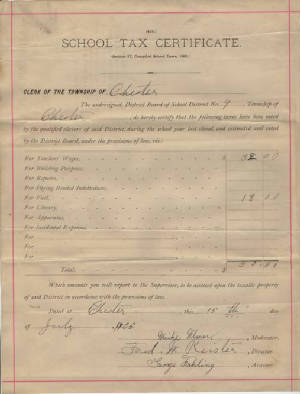 SCHOOL TAX CERTIFICATE.
CLERK OF THE TOWNSHIP OF Chester
The undersigned, District Board of School District No. 9 Township of
Chester, do hereby certify that the following taxes have been voted
by the qualified electors of said District, during the school year last closed, and estimated and voted
by the District Board, under the provisions of law, viz:
For Teachers' Wages, $
For Building Purposes,
For Repairs,
For Paying Bonded Indebtedness,
For Fuel,
For Library,
For Apparatus,
For Incidental Expenses,
For
For
For
Total, $
Which amounts you will report to the Supervisor, to be assessed upon the taxable property
of said District in accordance with the provisions of law.
Dated at Chester this 15th day
of
Moderator.
Fred W. Reister, Director.
George Assessor.